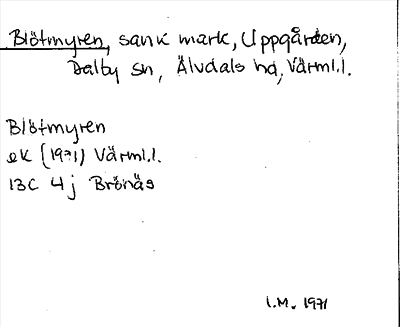 Blötmyren, sank mark, Uppgården,
Dalby sn, Älvdals hd, Värml.l.
Blötmyren
ek (1971) Värml.l.
13C 4j Brönäs
I.M. 1971